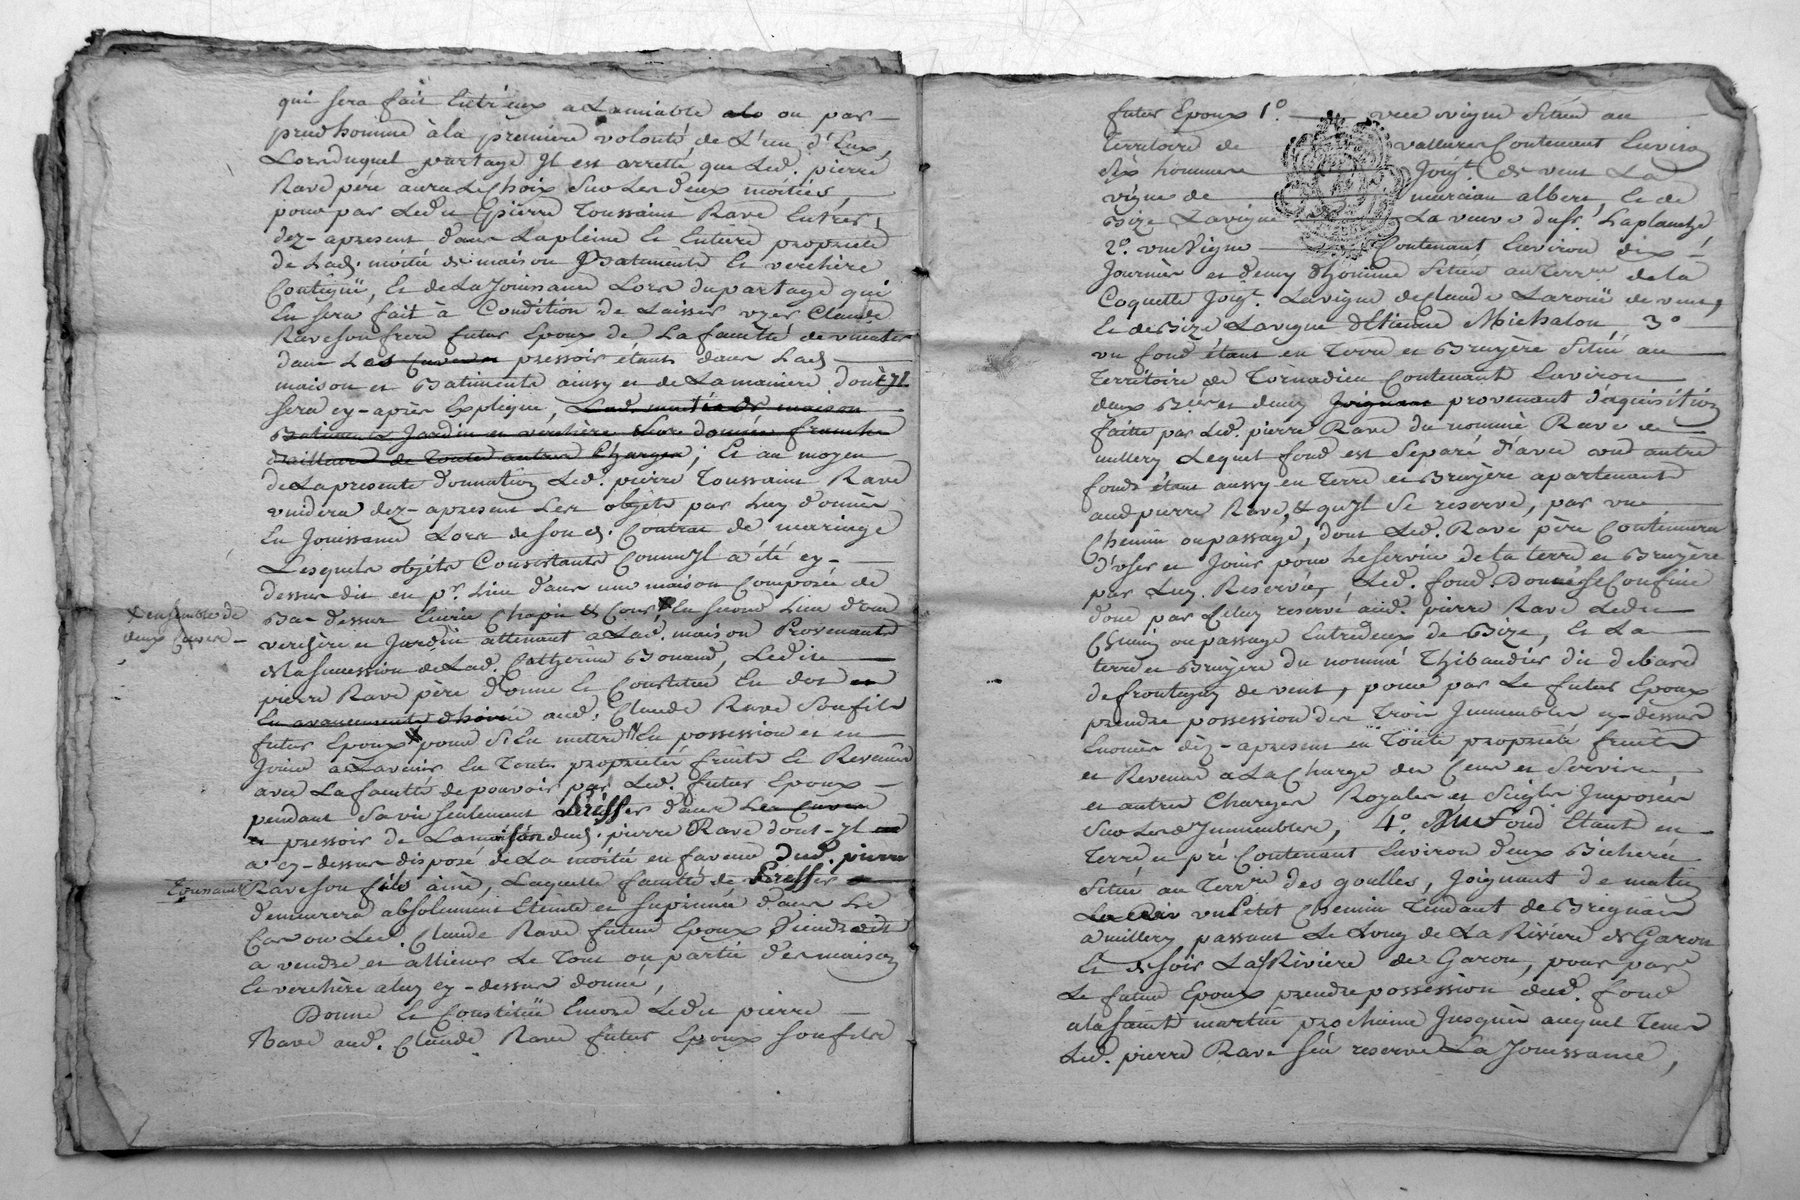 qui sera fait Entr'eux a Lamiable ou par
prudhomme à la premiere volonté de L'un d'Eux,
Lors duquel partage Jl est arretté que Led. pierre
Rave père aura Le Choix Sur Les deux moitiés,
pour par Ledit pierre Toussaint Rave Entrer,
dez-apresent dans La pleine Et Entiere proprieté
de Lad. moitié de maison Batiments Et verchère
Contigüe, Et de La Jouissance Lors du partage qui
En sera fait à Condition de Laisser user Claude
Rave son frere futur Epoux de La faculté de
dans Les Cuves et pressoir étant dans Lad.
maison et Batiments ainsy et de La maniere dont Jl
sera cy-après Expliqué, Lad. moitié de maison
Batiments Jardin et verchère
d'ailleurs de Toutes autres Charges; Et au moyen
de La presente donnation Led. pierre Toussaint Rave
vuidera dez-apresent Les objets par Luy donnés
En Jouissance Lors de son d. Contrat de mariage
Lesquels objets Consistants Comme Jl a été cy-
dessus dit en pr. Lieu dans une maison Composée de
Bas dessus Ecurie Chapit & Cour, En second Lieu d'une
verchère et Jardin attenant a Lad. maison Provenants
de La succession de Lad. Catherine Bonand, Ledit
pierre Rave père donne Et Constitue En dot
En avancement d'hoirie aud. Claude Rave Son fils
futur Epoux pour S'En mettre En possession et en
Jouir a L'avenir En Toute proprieté fruits Et Revenus
avec La faculté de pouvoir par Led. futur Epoux
pendant Sa vie seulement dans Les Cuves
et pressoir de La maison dud. pierre Rave dont-Jl
a cy-dessus disposé de La moitié en faveur dud. pierre
Toussaint Rave son fils ainé, Laquelle faculté de
demeurera absolument Eteinte et suprimée dans Le
Cas ou Led. Claude Rave futur Epoux viendroit
a vendre et alliener Le Tout ou partie des maison
Et verchère a luy cy-dessus donné,
Donne Et Constitüe Encore Ledit pierre
Rave aud. Claude Rave futur Epoux son fils
L'ensemble de
deux Cuves
futur Epoux 1°. une vigne Située au
Territoire de Contenant Environ
Six hommées Joigt. de vent La
vigne de albert, Et de
Bize La vigne La veuve du Sr. Laplanche
2°. une vigne Contenant Environ dix
Journées et demy d'homme Située au Terrre de la
Coquette Joigt. La vigne de Claude Laroüe de vent,
Et de Bize La vigne d'Etienne Michalon, 3°
un fond étant en Terre et Bruyère Situé au
Territoire de Tornadieu Contenant Environ
deux Bées et demy Joignant provenant d'aquisition
faitte par Led. pierre Rave du nommé Rave de
millery Lequel fond est Separé d'avec un autre
fond étant aussy en Terre et Bruyère apartenant
aud pierre Rave, & qu'Jl Se reserve, par un
Chemin ou passage, dont Led. Rave père Continuera
d'user et Jouir pour Le service de la terre et Bruyère
par Luy Reservée, Led. fond Donné Se Confine
donc par Celuy reservé aud. pierre Rave Ledit
Chemin ou passage Entredeux de Bize, Et La
terre et Bruyère du nommé Thibaudier dit debard
de frontigny de vent, pour par Le futur Epoux
prendre possession des Trois Jmmeubles cy-dessus
Enoncés déz-apresent en Toute proprieté fruits
et Revenus a La Charge des Cens et Servis,
et autres Charges Royales et Seigles Jmposées
Sur Lesd. Jmmeubles, 4°. Un fond Etant en
Terre et pré Contenant Environ deux Bicherées
Situé au Terrre des goulles, Joignant de matin
un Petit Chemin Tendant de Brignais
a millery passant Le Long de La Rivière de Garon
Et de soir La Rivière de Garon, pour par
Le futur Epoux prendre possession dud. fond
a la saint martin prochaine Jusques auquel Tems
Led. pierre Rave s'en reserve La Jouissance,